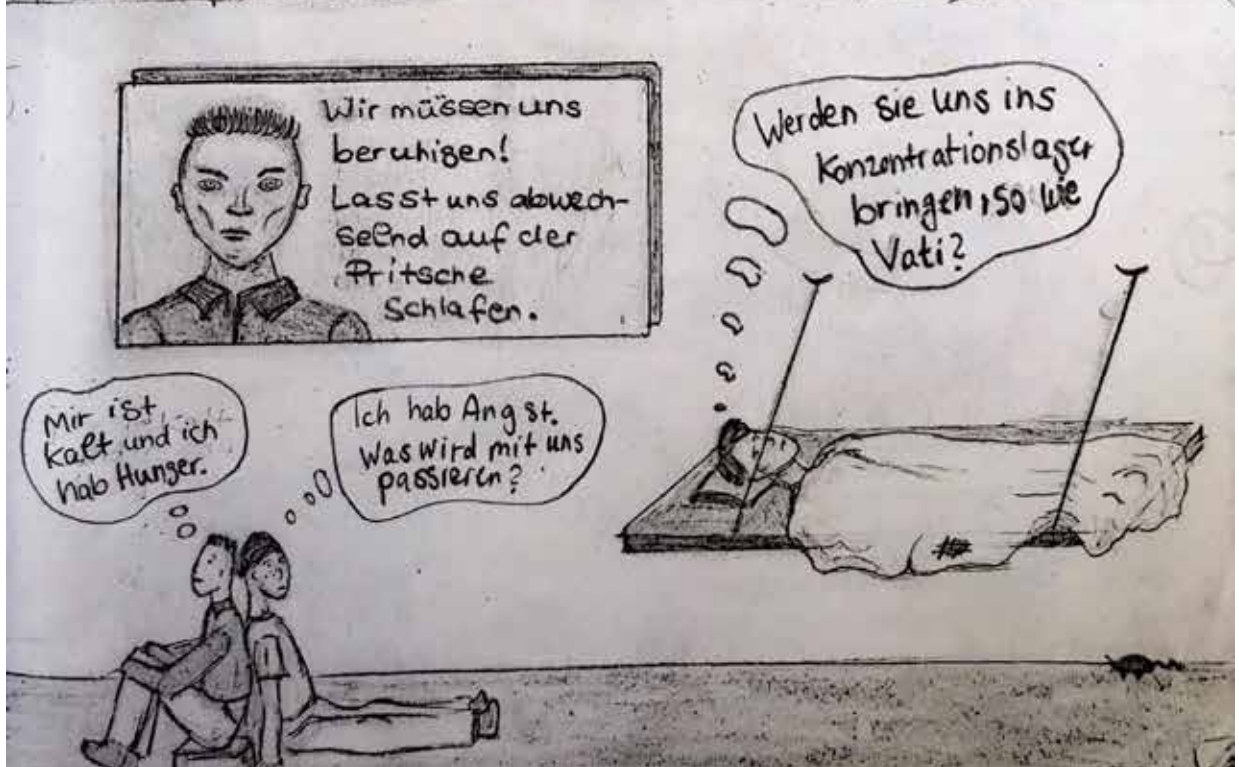 Wir müssen uns
beruhigen!
Lasst uns abwech-
selnd auf der
Pritsche
Schlafen.
Werden sie uns ins
Konzentrationslager
bringen, so wie
Vati?
Mir ist
kalt und ich
hab Hunger.
Ich hab Angst.
Was wird mit uns
passieren?